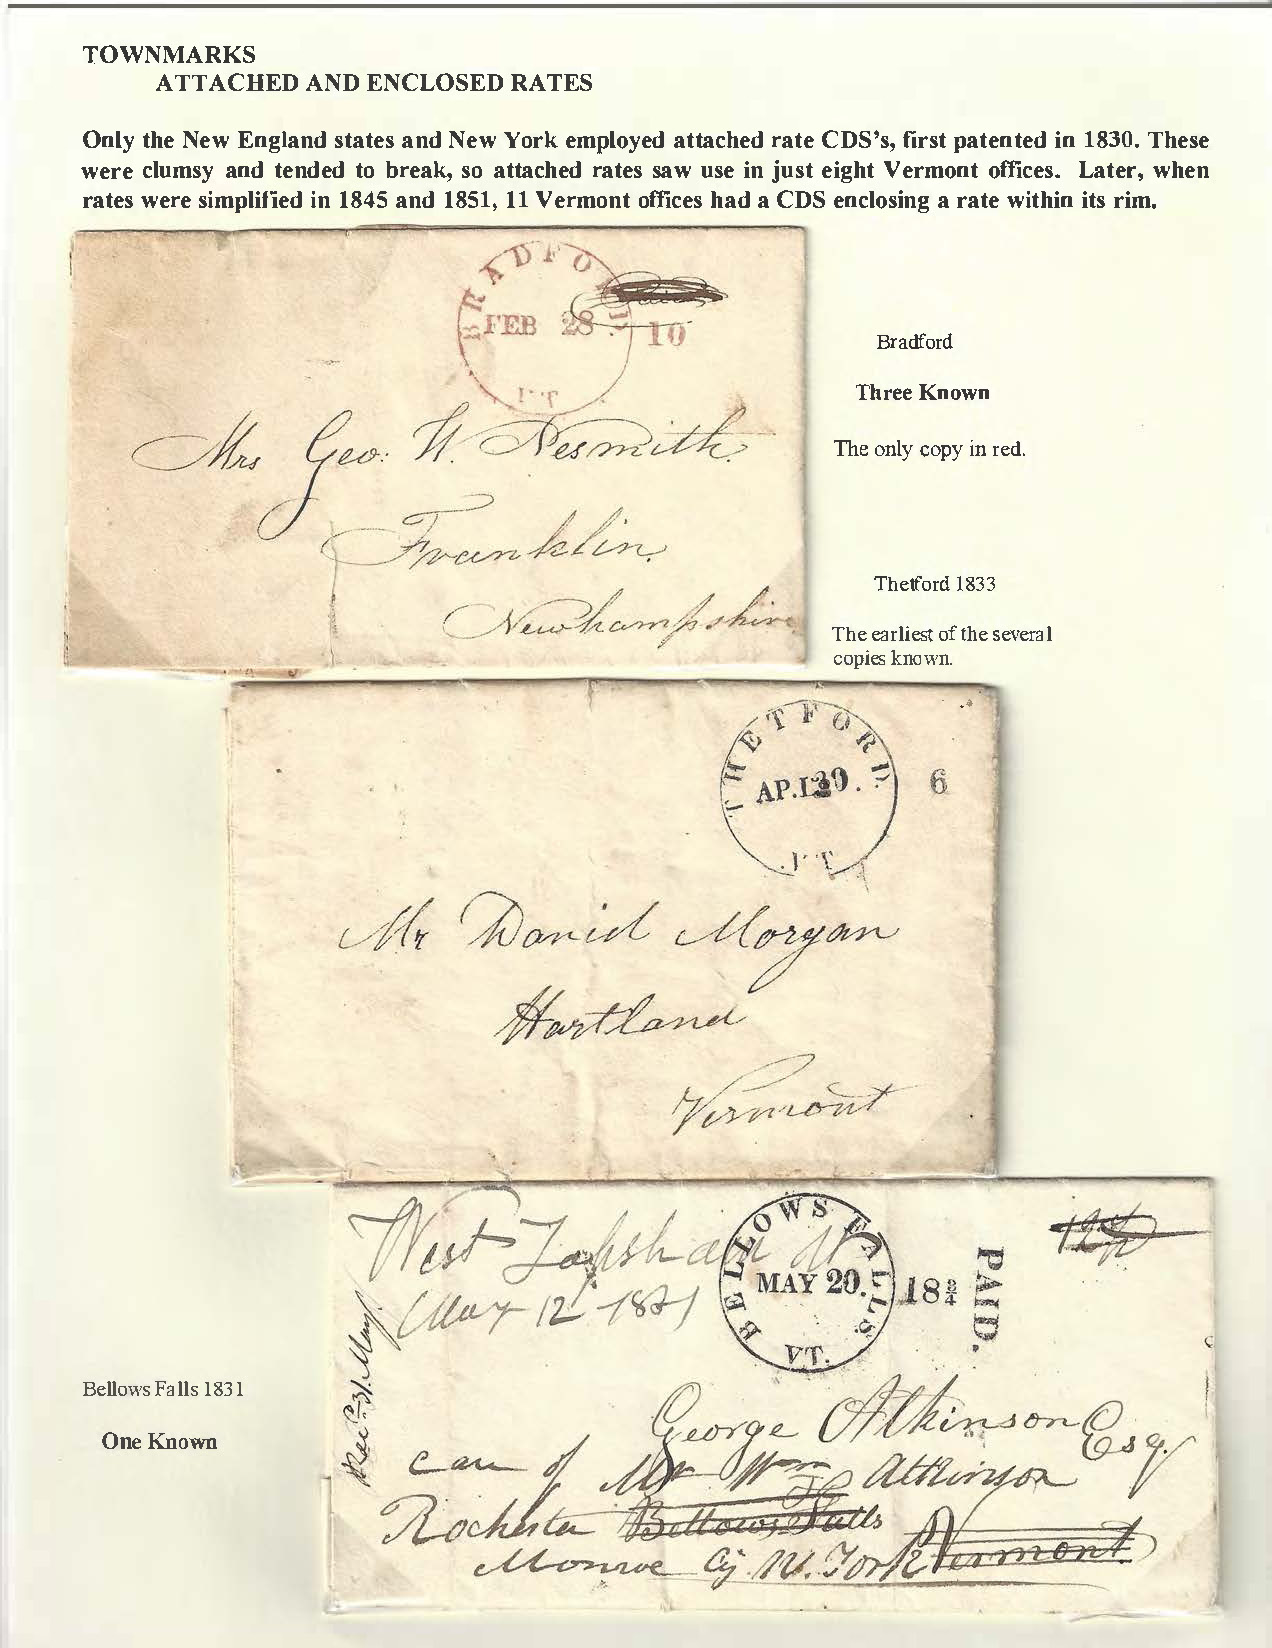 TOWNMARKS
ATTACHED AND ENCLOSED RATES
Only the New England states and New York employed attached rate CDS's, first patented in 1830. These
were clumsy and tended to break, so attached rates saw use in just eight Vermont offices. Later, when
rates were simplified in 1845 and 1851, 11 Vermont offices had a CDS enclosing a rate within its rim.
BRADFORD
FEB 28
10
VT
Mrs Geo: W. Nesmith
Franklin
Newhampshire
Bradford
Three Known
The only copy in red.
Thetford 1833
The earliest of the several
copies known.
THETFORD.
AP.L 30.
6
VT
Mr Daniel Morgan
Hartland
Vermont
West Topsham Vt
May 12 1831
BELLOWS FALLS
MAY 20.
VT.
18 3/4
PAID.
12 1/2
Rec'd 31 May
George Atkinson Esq.
care of Mr Wm Atkinson
Rochester Bellows Falls
Monroe Cy N. York Vermont
Bellows Falls 1831
One Known